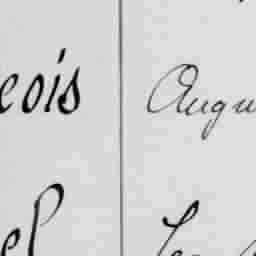 eois Augu
el Le